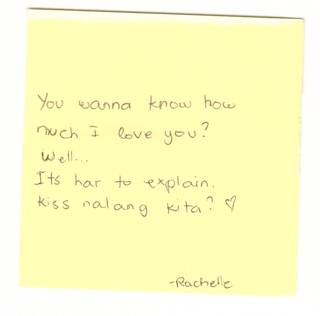 You wanna know how
much I love you?
Well...
Its har to explain.
Kiss nalang kita? ♡
-Rachelle